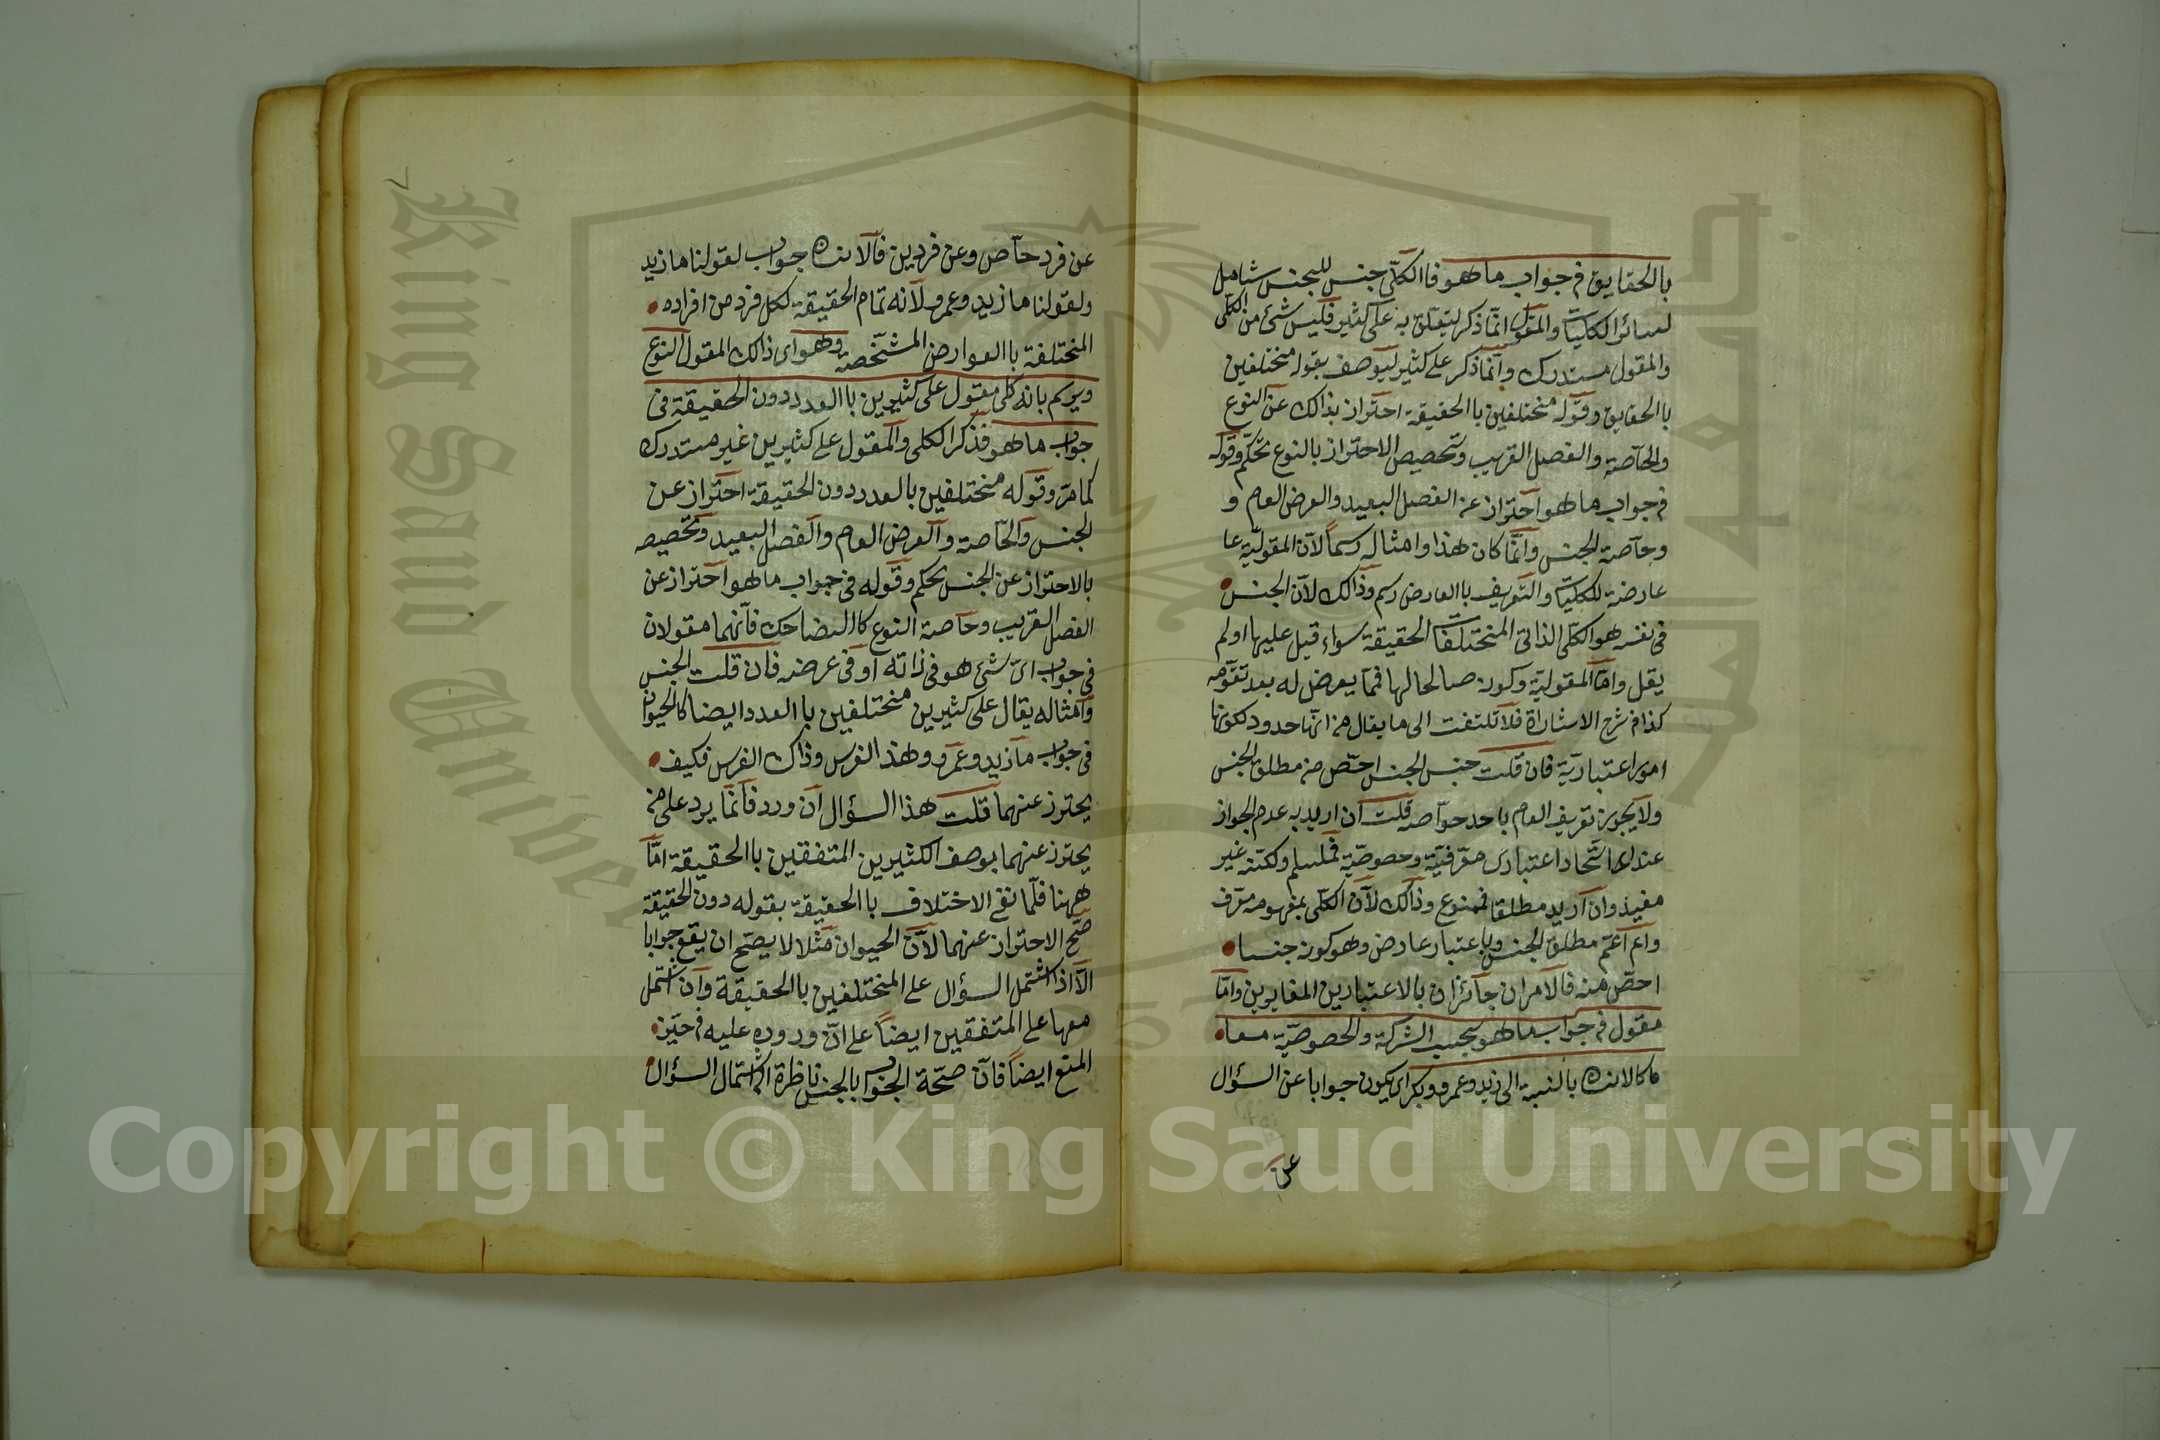 بالحقايق في جواب ما هو فاالكلّى جنس للجنس شامل
لسائر الكليات والمقول انّما ذكر ليتعلّق به على كثير فليس شئ من الكلّى
والمقول مستدرك وانّما ذكر على كثير ليوصف بقوله مختلفين
باالحقايق وقوله مختلفين باالحقيقة احتراز بذالك عن النوع
والخآصّة والفصل القريب وتخصيص الاحتراز بالنوع تحكّم وقوله
في جواب ما هو احتراز عن الفصل البعيد والعرض العام و
وخآصة الجنس وانّما كان هذا وامثاله رسماً لانّ المقوليّة عا
عارضة للكليّات والتعريف باالعارض رسم وذالك لانّ الجنس
في نفسه هو الكلّى الذاتى المختلفات الحقيقة سواء قيل عليها اولم
يقل وامّا المقوليّة وكونه صالحا لها فممّا يعرض له بعد تقوّمه
كذا في شرح الاشارة فلا تلتفت الى ما يقال من انّها حدود لكونها
امورا اعتباريّة فان قلت جنس الجنس اخصّ من مطلق الجنس
ولا يجوز تعريف العام باحد خوآصه قلت ان اريد به عدم الجواز
عند اتّحاد اعتبارى معرّفيّة وخصوصيّة فمسلم ولكنّه غير
مفيد وان اريد مطلقا فممنوع وذالك لانّ الكلّى بمفهومه معرّف
واعم اعمّ مطلق الجنس وباعتبار عارض وهو كونه جنسا
اخصّ منه فالامران جآئزان بالاعتبارين المغايرين وامّا
مقول في جواب ما هو بحسب الشركة والخصوصيّة معا
كاالانسان بالنسبة الى زيد وعمرو وبكر اى يكون جوابا عن السؤال
عن
عن فرد خآص وعن فردين فالانسان جواب لقولنا ما زيد
ولقولنا ما زيد وعمرو لانه تمام الحقيقة لكل فرد من افراده
المختلفة باالعوارض المشخّصة وهو اى ذالك المقول النوع
ويرسم بانه كلى مقول على كثيرين باالعدد دون الحقيقة في
جواب ما هو فذكر الكلى والمقول على كثيرين غير مستدرك
كما مرّ وقوله مختلفين بالعدد دون الحقيقة احتراز عن
الجنس والخآصة والعرض العام والفصل البعيد وتخصيصه
بالاحتراز عن الجنس تحكم وقوله في جواب ما هو احتراز عن
الفصل القريب وخآصة النوع كاالضاحك فانّهما مقولان
في جواب اىّ شئ هو في ذاته او في عرضه فان قلت الجنس
وامثاله يقال على كثيرين مختلفين باالعدد ايضا كالحيوان
في جواب ما زيد وعمرو وهذا الفرس وذاك الفرس فكيف
يحترز عنهما قلت هذا السؤال ان ورد فانّما يرد على من
يحترز عنهما بوصف الكثيرين المتفقين باالحقيقة امّا
ههنا فلمّا نفى الاختلاف باالحقيقة بقوله دون الحقيقة
صحّ الاحتراز عنهما لانّ الحيوان مثلا لا يصحّ ان يقع جوابا
الّا اذا اشتمل السؤال على المختلفين باالحقيقة وان اشتمل
معها على المتفقين ايضاً على انّ وروده عليه في حيّز
المنع ايضاً فانّ صحّة الجواب بالجنس ناظرة الى اشتمال السؤال